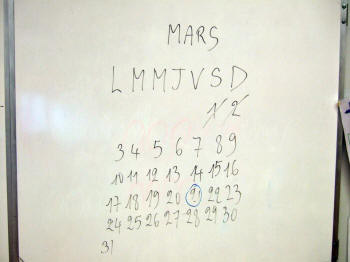 MARS
L M M J V S D
1 2
3 4 5 6 7 8 9
10 11 12 13 14 15 16
17 18 19 20 21 22 23
24 25 26 27 28 29 30
31